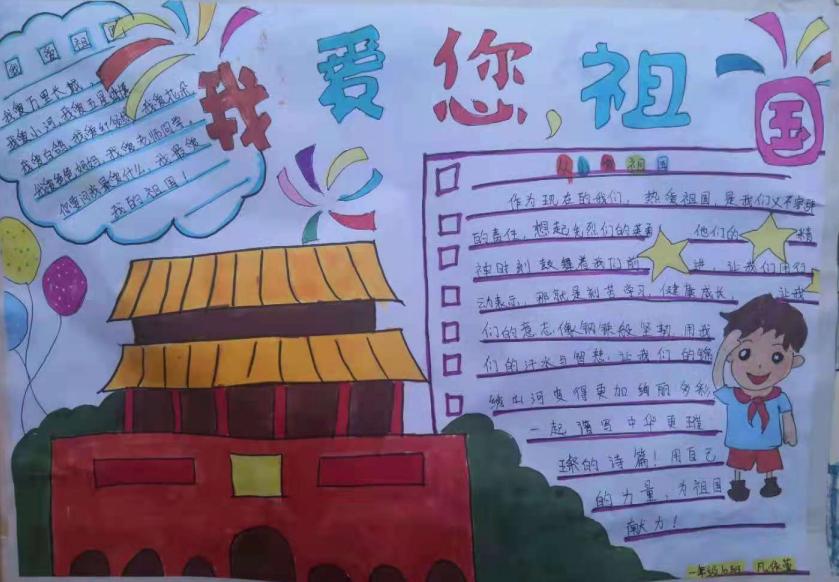 我爱您,祖国
我爱祖国
我爱万里长城,
我爱小河,我爱五星红旗
我爱白鸽,我爱红领巾,我爱花朵
我爱爸爸妈妈,我爱老师同学。
你要问我最爱什么,我最爱
我的祖国!
人人爱祖国
作为现在的我们,热爱祖国,是我们义不容辞
的责任,想起先烈们的英勇 他们的 精
神时刻鼓舞着我们前 进,让我们用行
动表示,那就是刻苦学习,健康成长, 让我
们的意志像钢铁般坚韧,用我
们的汗水与智慧,让我们的锦
绣山河变得更加绚丽多彩
一起谱写中华更璀
璨的诗篇!用自己
的力量,为祖国
献力!
一年级6班